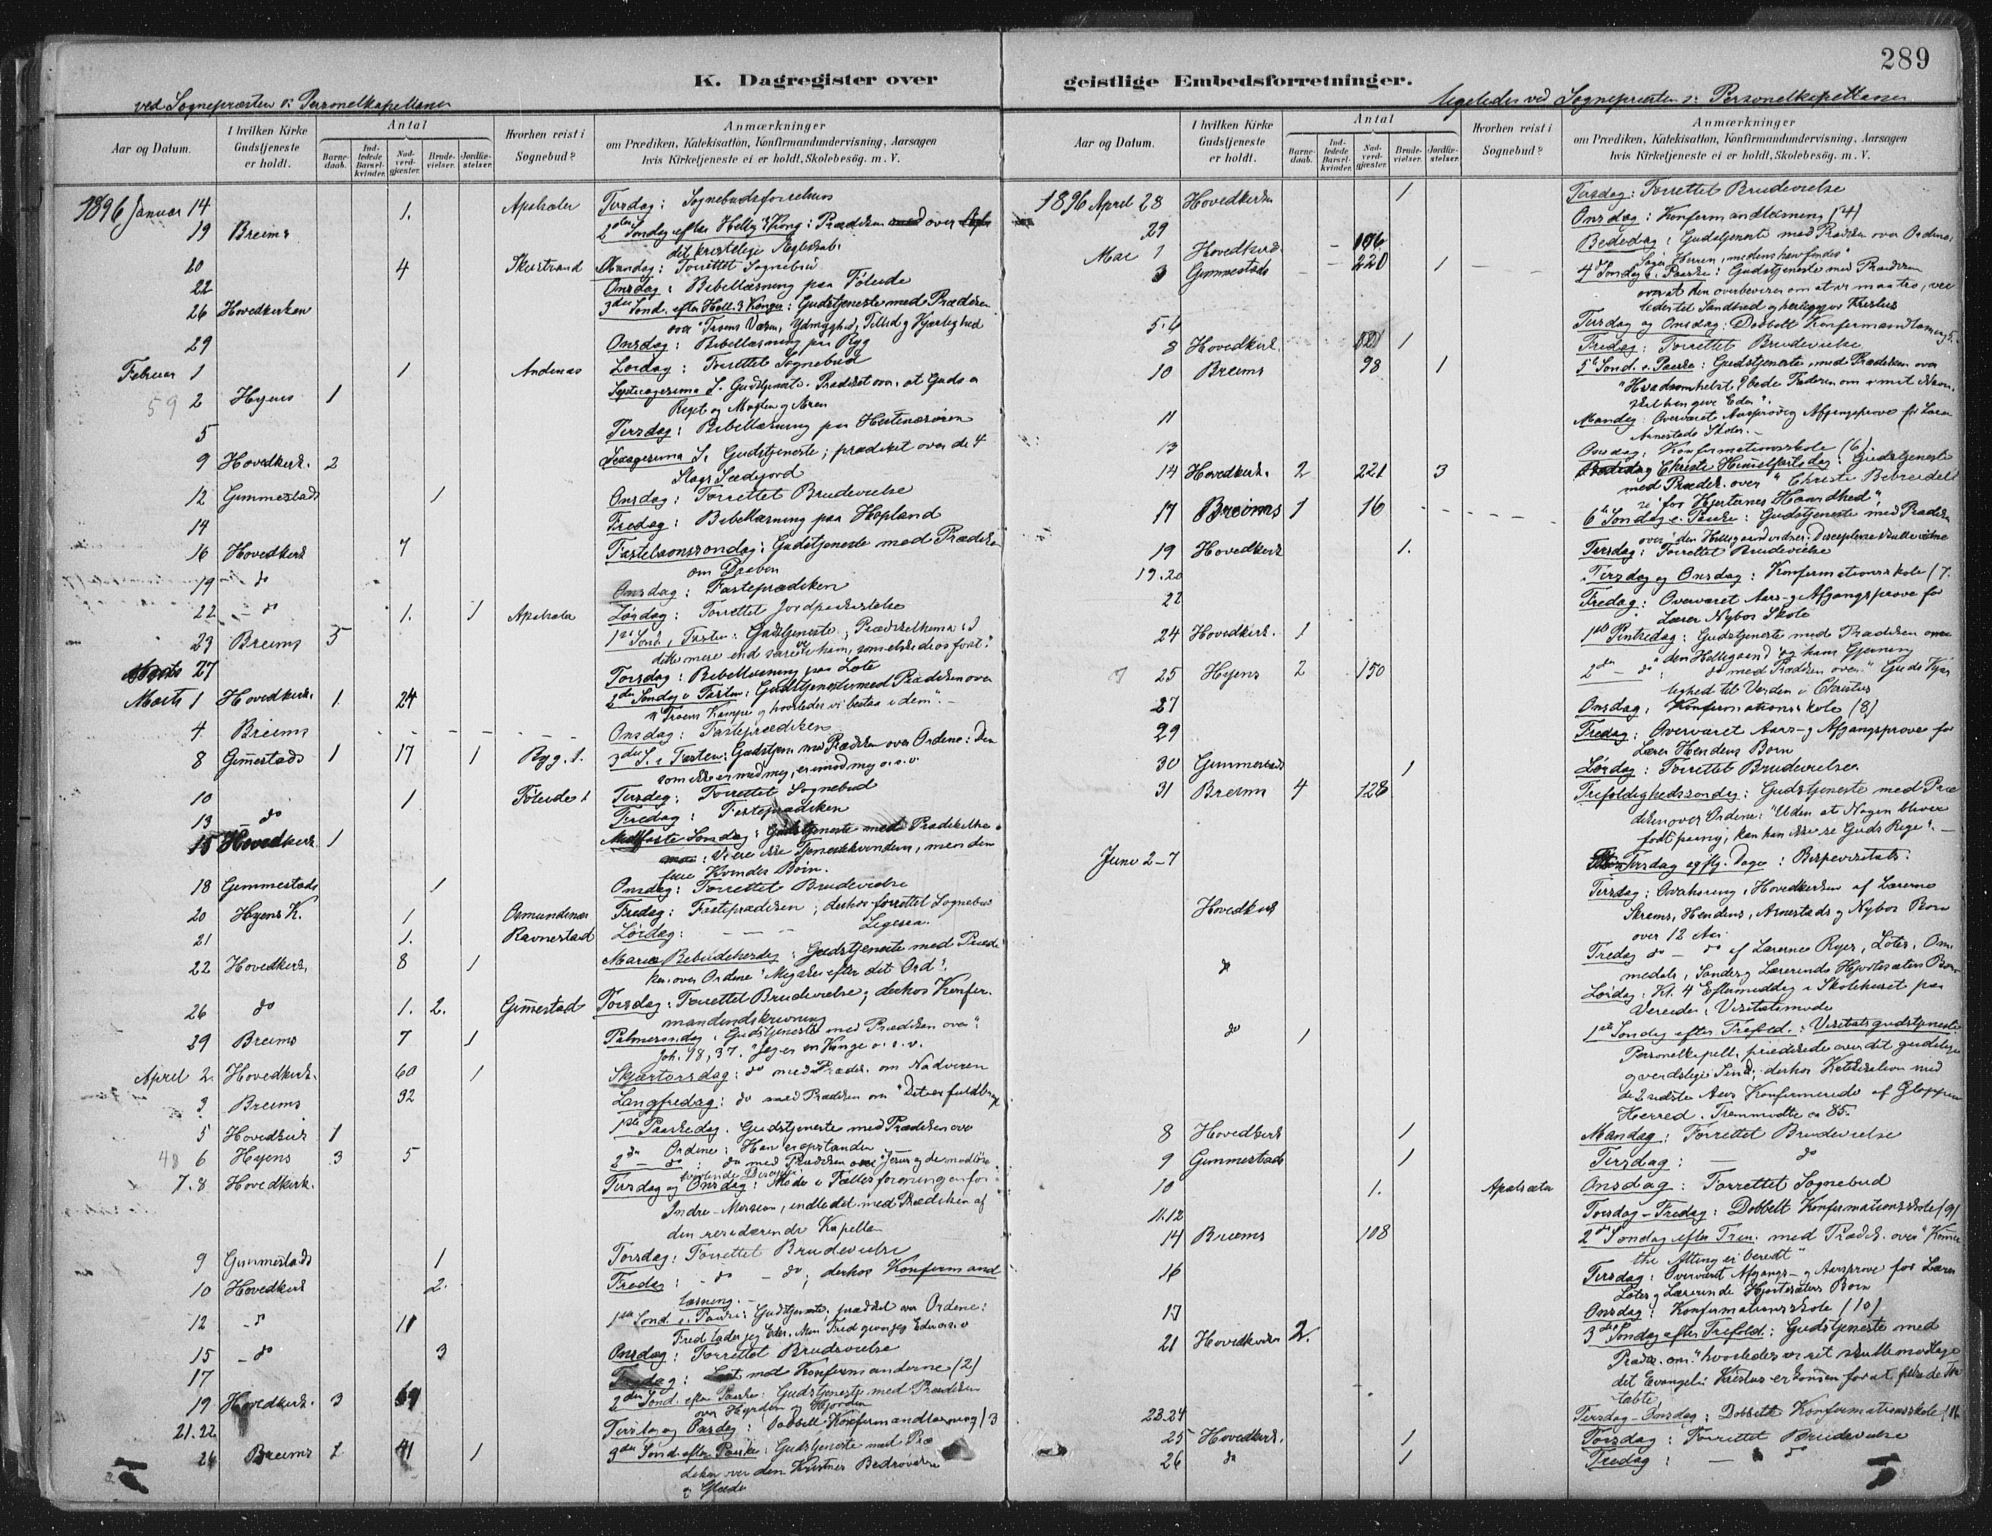 289
K. Dagregister over geistlige Embedsforretninger.
ved Sognepræsten o: Personelkapellanen
Aar og Datum.
I hvilken Kirke Gudstjeneste er holdt.
Antal
Barnedaab.
Indledede Barselkvinder.
Nadverdgjæster.
Brudevielser.
Jordfæstelser.
Hvorhen reist i Sognebud?
Anmærkninger
om Prædiken, Katekisation, Konfirmandundervisning, Aarsagen
hvis Kirketjeneste ei er holdt, Skolebesög. m. V.
1896 Januar 14 1. Apalsæter Tirsdag: Sognebudsforrettelse
19 Breims 2den Søndag efter Hellig 3 Kong: Prædiken over
det kristelige Ægteskab.
20 4 Mandag: Forrettet Sognebud
22 Onsdag: Bibellæsning paa Føleide
26 Hovedkirken 3die Sønd. efter Hell. 3 Konger: Gudstjeneste med Prædiken
over Troens Væsen, Ydmyghed, Tillid og Kjærlighed
29 Onsdag: Bibellæsning paa Ryg
Februar 1 1 Andenæs Lördag: Forrettet Sognebud
59 2 Hyens 1 Septuagesima S. Gudstjeneste. Prædiket over, at Guds er
Riget og Magten og Æren
5 Bibellæsning paa Hestenesøren
9 Hovedkirk. 2 Sexagesima S. Gudstjeneste; prædiket over de 4
Slags Sædejord
12 Gimmestads 1 Onsdag: Forrettet Brudevielse
14 Fredag: Bibellæsning paa Hopland
16 Hovedkirk 7 Fastelavnssöndag: Gudstjeneste med Prædiken
om Daaben
19 do Onsdag: Fasteprædiken
22 do 1. 1 Apalsæter Lørdag: Forrettet Jordpaakastelse
23 Breims 5 1ste Sønd. i Fasten: Gudstjeneste;
27 Torsdag: Bibellæsning paa Lote
Marts 1 Hovedkirk. 1 24 2den Søndag i Fasten: Gudstjeneste med Prædiken over
"Troens Kamp og hvorledes vi bestaa i dem".
4 Breims Onsdag: Fasteprædiken
8 Gimestads 1 17 1 Ryg. 1. 3die S. i Fasten: Gudstjen. med Prædiken over Ordene: Den
som ikke er med mig, er imod mig o.s.v.
10 1 Föleide 1 Tirsdag: Forrettet Sognebud
13 do Fredag: Fasteprædiken
15 Hovedkirk. 1 Midfaste Søndag: Gudstjeneste med
: Vi ere ikke Tjenestekvindens, men den
frie Kvindes Børn.
18 Gimmestads 1 Onsdag: Forrettet Brudevielse
20 Hyens K. 1 Osmundenæs Fredag: Fasteprædiken; derhos forrettet Sognebud
21 1. Ravnestad Lördag: Ligesaa.
22 Hovedkirk. 8 1 Mariæ Bebudelsesdag: Gudstjeneste med Prædi
ken over Ordene "Mig ske efter dit Ord".
26 do 1. 2. Gimestad Torsdag: Forrettet Brudevielse; derhos Konfir-
mandindskrivning
29 Breims 7 1 Palmesøndag: Gudstjeneste med Prædiken over:
Joh. 18, 37. "Jeg er en Konge o.s.v.
April 2. Hovedkirk. 60 1 Skjærtorsdag: do med Prædik. om Nadveren
3 Breims 32 Langfredag: do med Prædiken om "Det er fuldbragt
5 Hovedkirk 1 1ste Paaskedag: Gudstjeneste med Prædiken over
Ordene: Han er opstanden
48 6 Hyens 3 5 2den - do: do med Prædiken over Jesus og de
7.8 Hovedkirk. Tirsdag og Onsdag: Møde i Fællesforeningen for
Indre-Mission, indledet med Prædiken af
den residerende Kapellan
9 Gimmestads 1 Torsdag: Forrettet Brudevielse
10 Hovedkirk 2. Fredag: - do - do; derhos Konfirmand
læsning.
12 - do 11 1ste Sønd. e. Paaske: Gudstjeneste; prædiket over Ordene:
Fred lader jeg Eder, Min Fred giver jeg Eder o.s.v
15 - do 3 Onsdag: Forrettet Brudevielse
17 Fredag: Læst med Konfirmanderne (2)
19 Hovedkirk. 3 69 2den Sønd. efter Paaske: Gudstjeneste med Prædiken
over Hyrden og Hjorden
21.22 Tirsdag og Onsdag: Dobbelt Konfirmandlæsning (3
26 Breims 2 41 1 3die Sønd. efter Paaske: Gudstjeneste med Præ
diken over den Kristnes Bedrøvelse
og Glæde
ligeledes ved Sognepræsten o: Personelkapellanen
Aar og Datum.
I hvilken Kirke Gudstjeneste er holdt.
Antal
Barnedaab.
Indledede Barselkvinder.
Nadverdgjæster.
Brudevielser.
Jordfæstelser.
Hvorhen reist i Sognebud?
Anmærkninger
om Prædiken, Katekisation, Konfirmandundervisning, Aarsagen
hvis Kirketjeneste ei er holdt, Skolebesög. m. V.
1896 April 28 Hovedkirken 1 Tirsdag: Forrettet Brudevielse
29 Onsdag: Konfirmandlæsning (4)
Mai 1 Hovedkirk 106 Bededag: Gudstjeneste med Prædiken over Ordene:
Søger Herren, medens han findes
3 Gimmestads 220 1 4de Søndag e. Paaske: Gudstjeneste med Prædiken
over at den overbeviser om at vi maa tro, vei
leder til Sandhed og herliggjør Kristus
5.6 Tirsdag og Onsdag: Dobbelt Konfirmandlæsning 5.
8 Hovedkirk. 1 Fredag: Forrettet Brudevielse
10 Breims 98 1 5te Sønd. e. Paaske: Gudstjeneste med Prædiken over
"Hvadsomhelst I bede Faderen om i mit Navn,
skal han give Eder".
11 Mandag: Overværet Aarsprøve og Afgangsprøve for Lærer
Arnestads Skoler.
13 Onsdag: Konfirmationsskole (6)
14 Hovedkirk. 2 221 3 Christi Himmelfartsdag: Gudstjeneste
med Prædik. over "Christi Bebreidel
se for Hjerternes Haardhed".
17 Breims 1 16 6te Søndag e. Paaske: Gudstjeneste med Prædiken
over: den Helligaand vidner, Disciplene skulle vidne
19 Hovedkirk 1. Tirsdag: Forrettet Brudevielse
19.20 Tirsdag og Onsdag: Konfirmationsskole (7.
22 Fredag: Overværet Aars- og Afgangsprøve for
Lærer Nybøs Skole
24 Hovedkirk. 1 1ste Pintsedag: Gudstjeneste med Prædiken over
"den Helligaand og hans Gjerning
25 Hyens 2 150 2den - do: do med Prædiken over "Guds Kjær
lighed til Verden i Christus
27 Onsdag: Konfirmationsskole (8)
29 Fredag: Overværet Aars- og Afgangsprøve for
Lærer Hendens Børn
30 Gimmestads 1 Lørdag: Forrettet Brudevielse
31 Breims 4 128 Trefoldighedssøndag: Gudstjeneste med Præ
diken over Ordene: "Uden at Nogen bliver
født paany, kan han ikke se Guds Rige".
Juni 2-7 Tirsdag og flg. Dage: Bispevisitats:
Hovedkirk Tirsdag: Overhøring i Hovedkirken af Lærerne
Skrems, Hendens, Arnestads og Nybøs Børn
over 12 Aar
do Fredag do - do af Lærerne Ryes, Lotes, Om
medals, Sandes og Lærerinde Hjortesæters Børn
Lørdag: Kl. 4 Eftermiddag i Skolehuset paa
Vereide: Visitatsmøde
do 1 1ste Søndag efter Trefold.: Visitatsgudstjeneste
Personelkapell. prædikede over det gudelige
og verdslige Sind; derhos Katekisation med
de 2 sidste Aars Konfirmerede af Gloppen
Herred. Fremmødte ca 85.
8 Hovedkirk 1 Mandag: Forrettet Brudevielse
9 Gimmestads 1 Tirsdag: - do
10 1. Apalsæter Onsdag: Forrettet Sognebud
11.12 Torsdag-Fredag: Dobbelt Konfirmationsskole (9)
14 Breims 108 2den Søndag efter Trin. med Prædik. over "Kommer
thi Alting er beredt"
16 Tirsdag: Overværet Afgangs- og Aarsprøve for Lærer
Lotes og Lærerinde Hjortesæters Børn
17 Onsdag: Konfirmationsskole (10)
21 Hovedkirken 2. 3die Søndag efter Trefold.: Gudstjeneste med
Prædik. om: "hvorledes vi ret skulle modtage
det Evangeli: Kristus er kommen for at frelse de For
tabte;
23.24 Tirsdag-Onsdag: Dobbelt Konfirmationsskole (11
25 Hovedkirk. 1 Torsdag: Forrettet Brudevielse
26 do 1 Fredag: - do